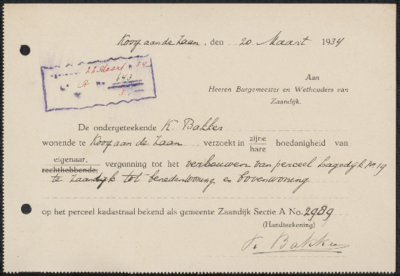 Koog aan de Zaan, den 20 Maart 1934
Aan
Heeren Burgemeester en Wethouders van
Zaandijk.
23 Maart 34
A
De ondergeteekende K. Bakker
wonende te Koog aan de Zaan verzoekt in zijne hoedanigheid van
hare
eigenaar,
rechthebbende: vergunning tot het verbouwen van perceel Lagedijk No. 19
te Zaandijk tot benedenwoning en bovenwoning
op het perceel kadastraal bekend als gemeente Zaandijk Sectie A No. 2989
(Handteekening)
K. Bakker